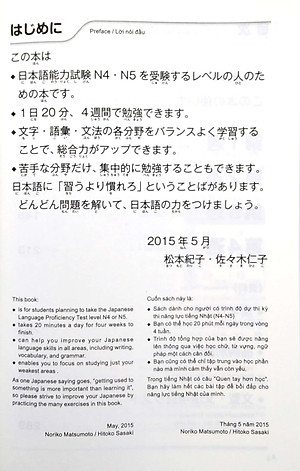 はじめに Preface / Lời nói đầu
この本は
◆日本語能力試験 N4・N5 を受験するレベルの人のた
めの本です。
◆1日20分、4週間で勉強できます。
◆文字・語彙・文法の各分野をバランスよく学習する
ことで、総合力がアップできます。
◆苦手な分野だけ、集中的に勉強することもできます。
日本語に「習うより慣れろ」ということばがあります。
どんどん問題を解いて、日本語の力をつけましょう。
2015年5月
松本紀子・佐々木仁子
This book:
◆ is for students planning to take the Japanese
Language Proficiency Test level N4 or N5.
◆ takes 20 minutes a day for four weeks to
finish.
◆ can help you improve your Japanese
language skills in all areas, including writing,
vocabulary, and grammar.
◆ enables you to focus on studying just your
weakest areas.
As one Japanese saying goes, "getting used to
something is more important than learning it",
so please strive to improve your Japanese by
practicing the many exercises in this book.
May, 2015
Noriko Matsumoto / Hitoko Sasaki
Cuốn sách này là:
◆ Sách dành cho người có trình độ dự thi kỳ
thi năng lực tiếng Nhật (N4-N5)
◆ Bạn có thể học 20 phút mỗi ngày trong vòng
4 tuần.
◆ Trình độ tổng hợp của bạn sẽ được nâng
lên thông qua việc học chữ, từ vựng, ngữ
pháp một cách cân đối.
◆ Bạn cũng có thể chỉ tập trung vào học phần
nào mà mình cảm thấy vẫn còn yếu.
Trong tiếng Nhật có câu "Quen tay hơn học".
Bạn hãy làm hết các bài tập để bồi đắp cho
năng lực tiếng Nhật của mình nào!
Tháng 5 năm 2015
Noriko Matsumoto / Hitoko Sasaki